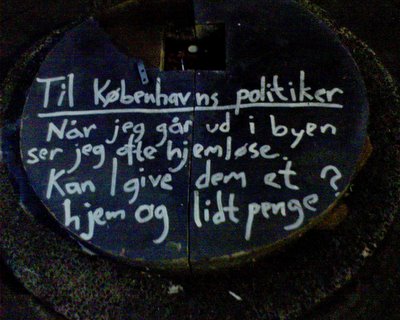 Til Københavns politiker
Når jeg går ud i byen
ser jeg ofte hjemløse.
Kan I give dem et ?
hjem og lidt penge